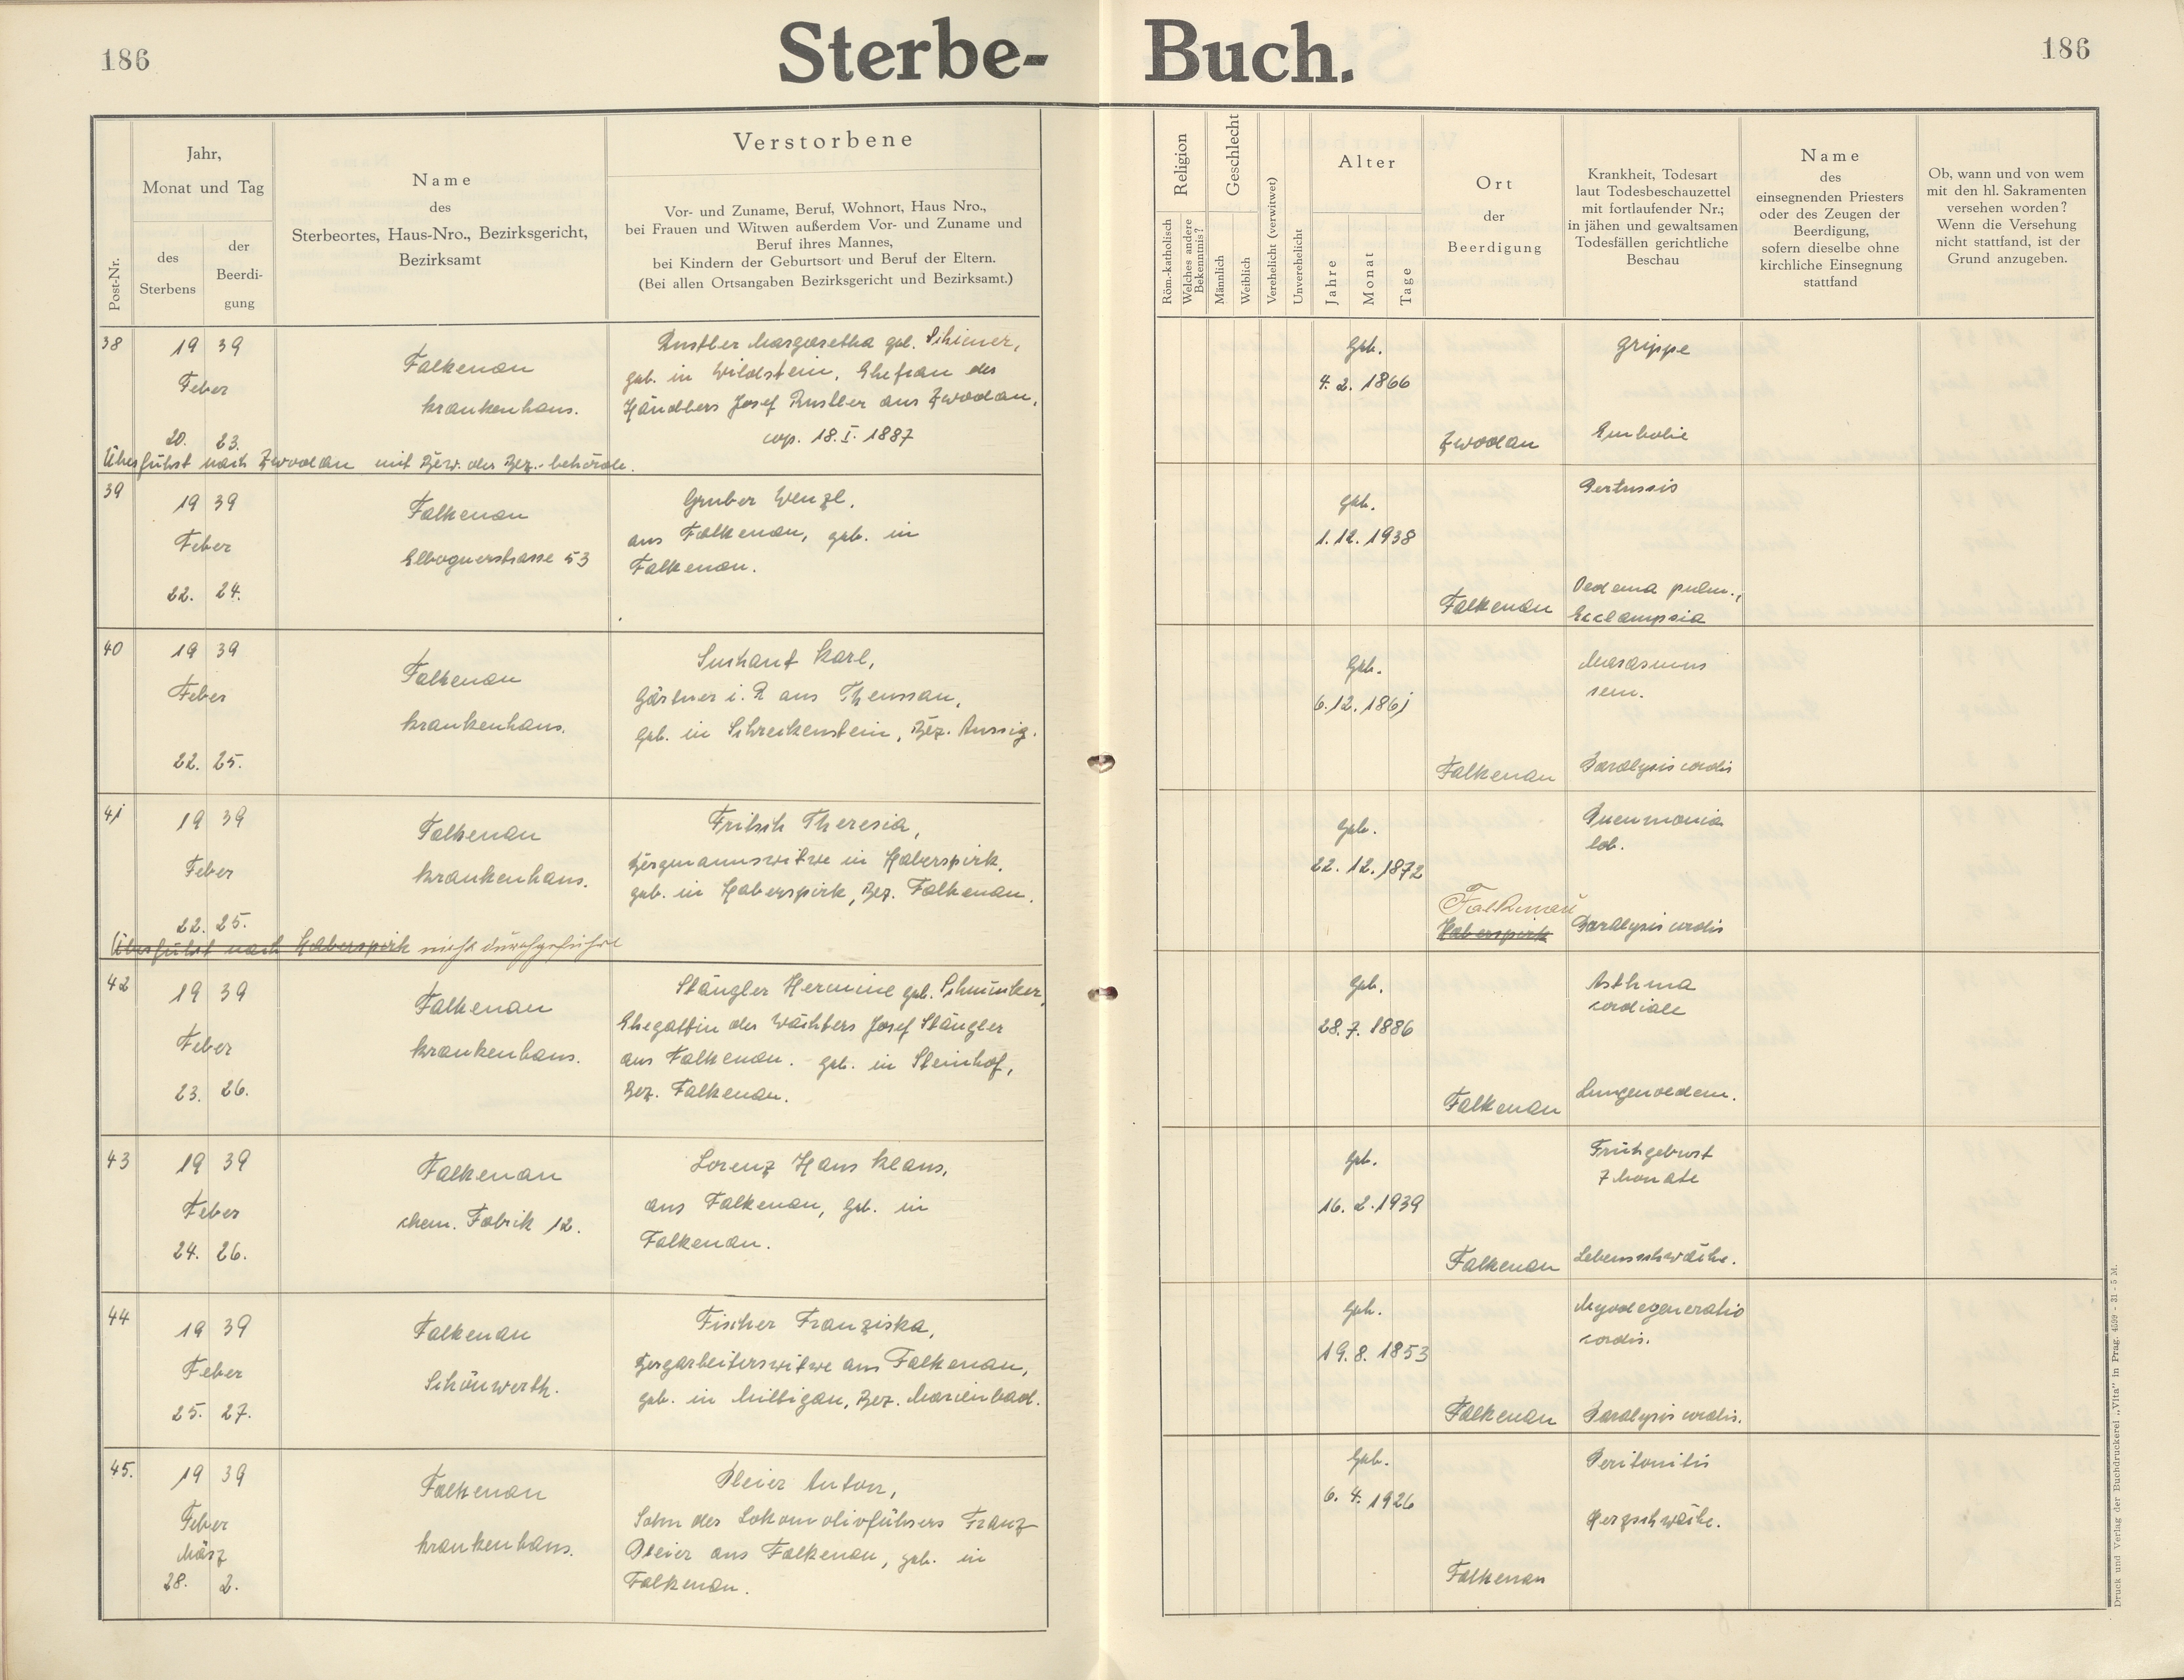 186
Sterbe-Buch.
186
Post-Nr.
Jahr,
Monat und Tag
des
Sterbens
der
Beerdi-
gung
Name
des
Sterbeortes, Haus-Nro., Bezirksgericht,
Bezirksamt
Verstorbene
Vor- und Zuname, Beruf, Wohnort, Haus Nro.,
bei Frauen und Witwen außerdem Vor- und Zuname und
Beruf ihres Mannes,
bei Kindern der Geburtsort und Beruf der Eltern.
(Bei allen Ortsangaben Bezirksgericht und Bezirksamt.)
Religion
Röm.-katholisch
Welches andere
Bekenntnis?
Geschlecht
Männlich
Weiblich
Verehelicht (verwitwet)
Unverehelicht
Alter
Jahre
Monat
Tage
Ort
der
Beerdigung
Krankheit, Todesart
laut Todesbeschauzettel
mit fortlaufender Nr.;
in jähen und gewaltsamen
Todesfällen gerichtliche
Beschau
Name
des
einsegnenden Priesters
oder des Zeugen der
Beerdigung,
sofern dieselbe ohne
kirchliche Einsegnung
stattfand
Ob, wann und von wem
mit den hl. Sakramenten
versehen worden?
Wenn die Versehung
nicht stattfand, ist der
Grund anzugeben.
38
19 39
Feber
20. 23.
Falkenau
Krankenhaus.
Rustler Margaretha geb. Schiener,
geb. in Wildstein, Ehefrau des
Händlers Josef Rustler aus Zwodau,
cop. 18.I. 1887
Überführt nach Zwodau mit Bew. der Bez.-behörde.
Geb.
4. 2. 1866
Zwodau
Grippe
Embolie
39
19 39
Feber
22. 24.
Falkenau
Elbognerstrasse 53
Gruber Wenzl,
aus Falkenau, geb. in
Falkenau.
Geb.
1. 12. 1938
Falkenau
Pertussis
Oedema pulm.,
Ecclampsia
40
19 39
Feber
22. 25.
Falkenau
Krankenhaus.
Suchant Karl,
Gärtner i. R aus Theussau,
geb. in Schreckenstein, Bez. Aussig.
Geb.
6. 12. 1861
Falkenau
Marasmus
sen.
Paralysis cordis
41
19 39
Feber
22. 25.
Falkenau
Krankenhaus.
Fritsch Theresia,
Bergmannswitwe in Haberspirk,
geb. in Haberspirk, Bez. Falkenau.
Überführt nach Haberspirk nicht durchgeführt
Geb.
22. 12. 1872
Falkenau
Haberspirk
Pneumonia
lob.
Paralysis cordis
42
19 39
Feber
23. 26.
Falkenau
Krankenhaus.
Stängler Hermine geb. Schmünker,
Ehegattin des Wächters Josef Stängler
aus Falkenau. geb. in Steinhof,
Bez. Falkenau.
Geb.
28. 7. 1886
Falkenau
Asthma
cordiale
Lungenoedem.
43
19 39
Feber
24. 26.
Falkenau
chem. Fabrik 12.
Lorenz Hans Klaus,
aus Falkenau, geb. in
Falkenau.
Geb.
16. 2. 1939
Falkenau
Frühgeburt
7 Monate
Lebensschwäche.
44
19 39
Feber
25. 27.
Falkenau
Schönwerth.
Fischer Franziska,
Bergarbeiterswitwe aus Falkenau,
geb. in Miltigau, Bez. Marienbad.
Geb.
19. 8. 1853
Falkenau
Myodegeneratio
cordis.
Paralysis cordis.
45.
19 39
Feber
März
28. 2.
Falkenau
Krankenhaus.
Pleier Anton,
Sohn des Lokomotivführers Franz
Pleier aus Falkenau, geb. in
Falkenau.
Geb.
6. 4. 1926
Falkenau
Peritonitis
Herzschwäche.
Druck und Verlag der Buchdruckerei „Vita" in Prag. 4599 - 31 - 5 M.